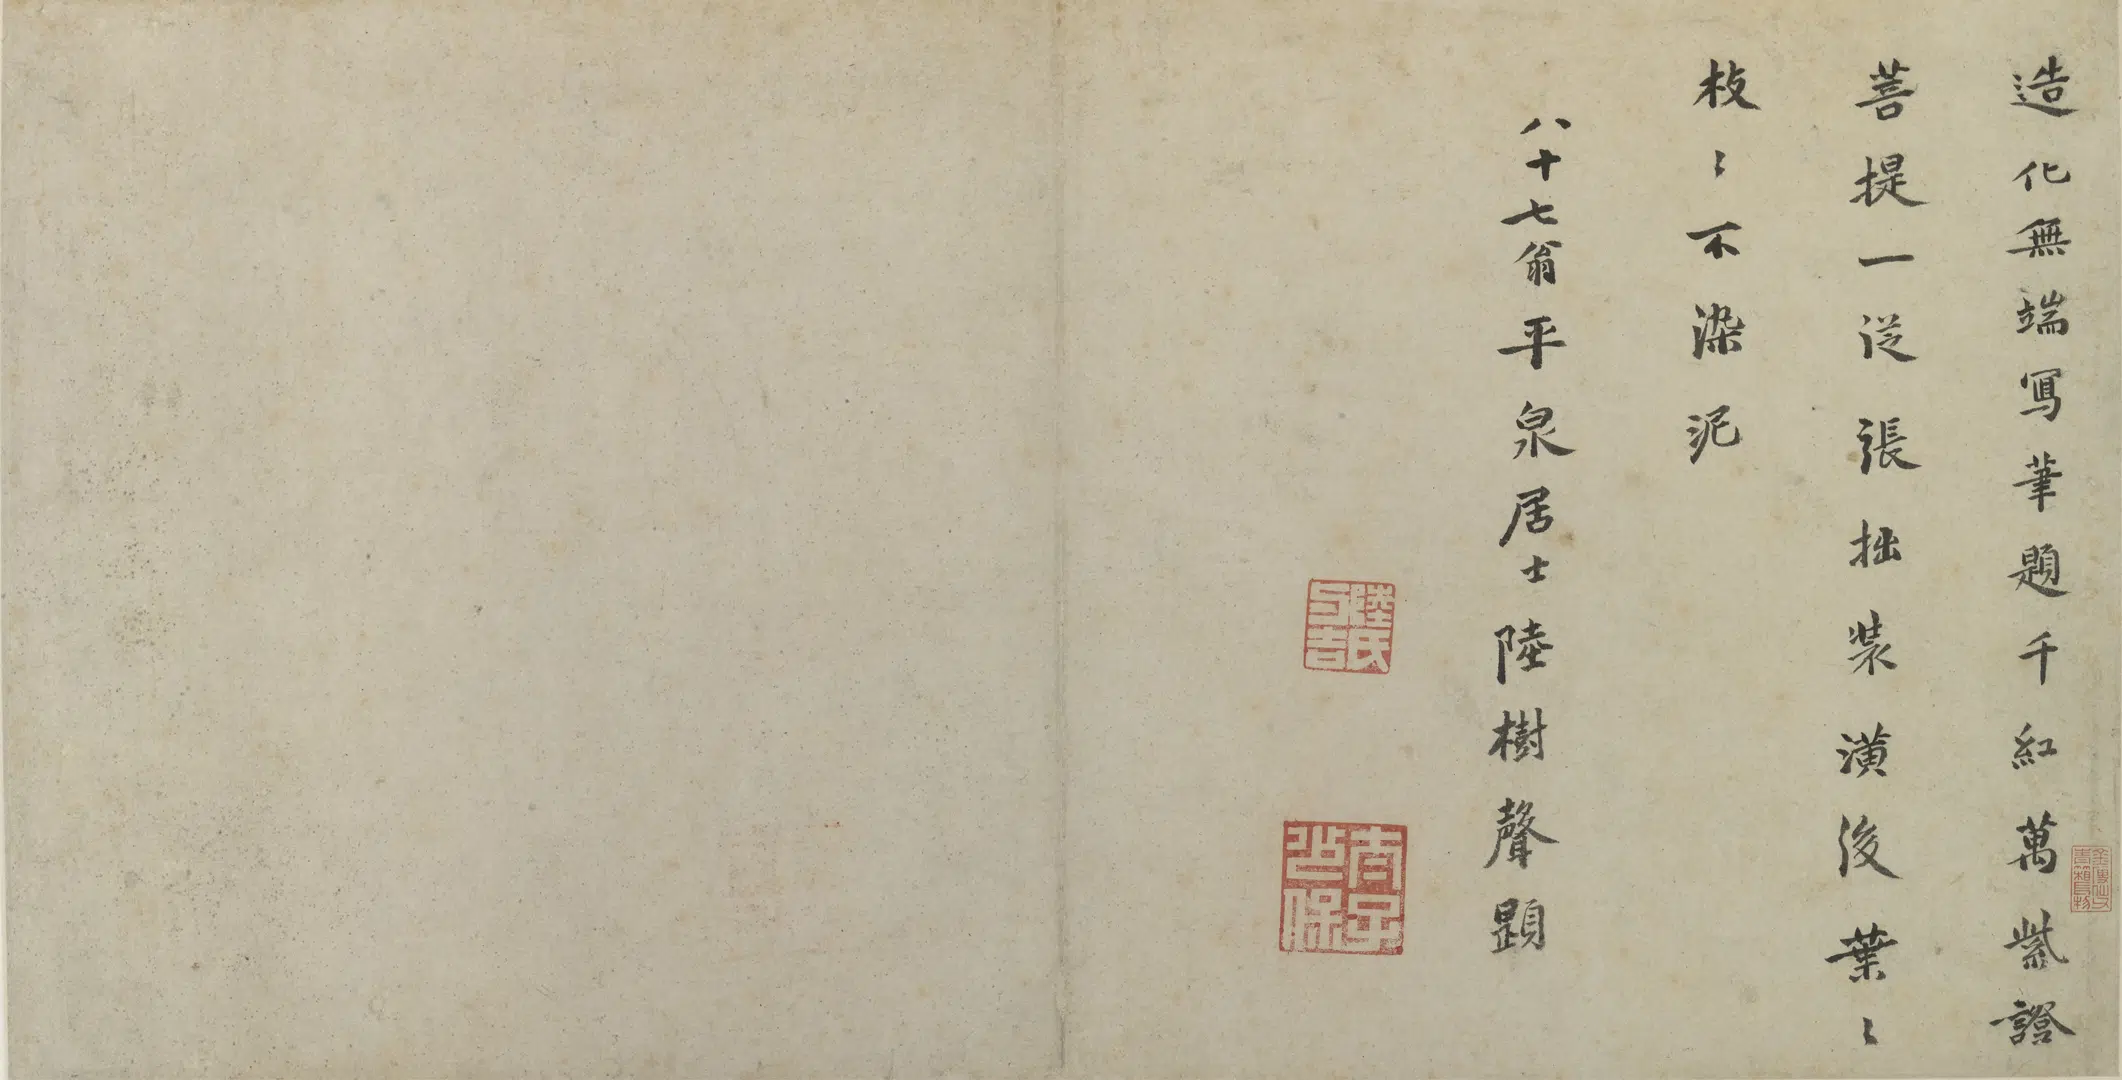 造化無端寫筆題千紅萬紫證
菩提一從張拙裝潢後葉〻
枝〻不染泥
八十七翁平泉居士陸樹聲題
陸氏與吉
宮保